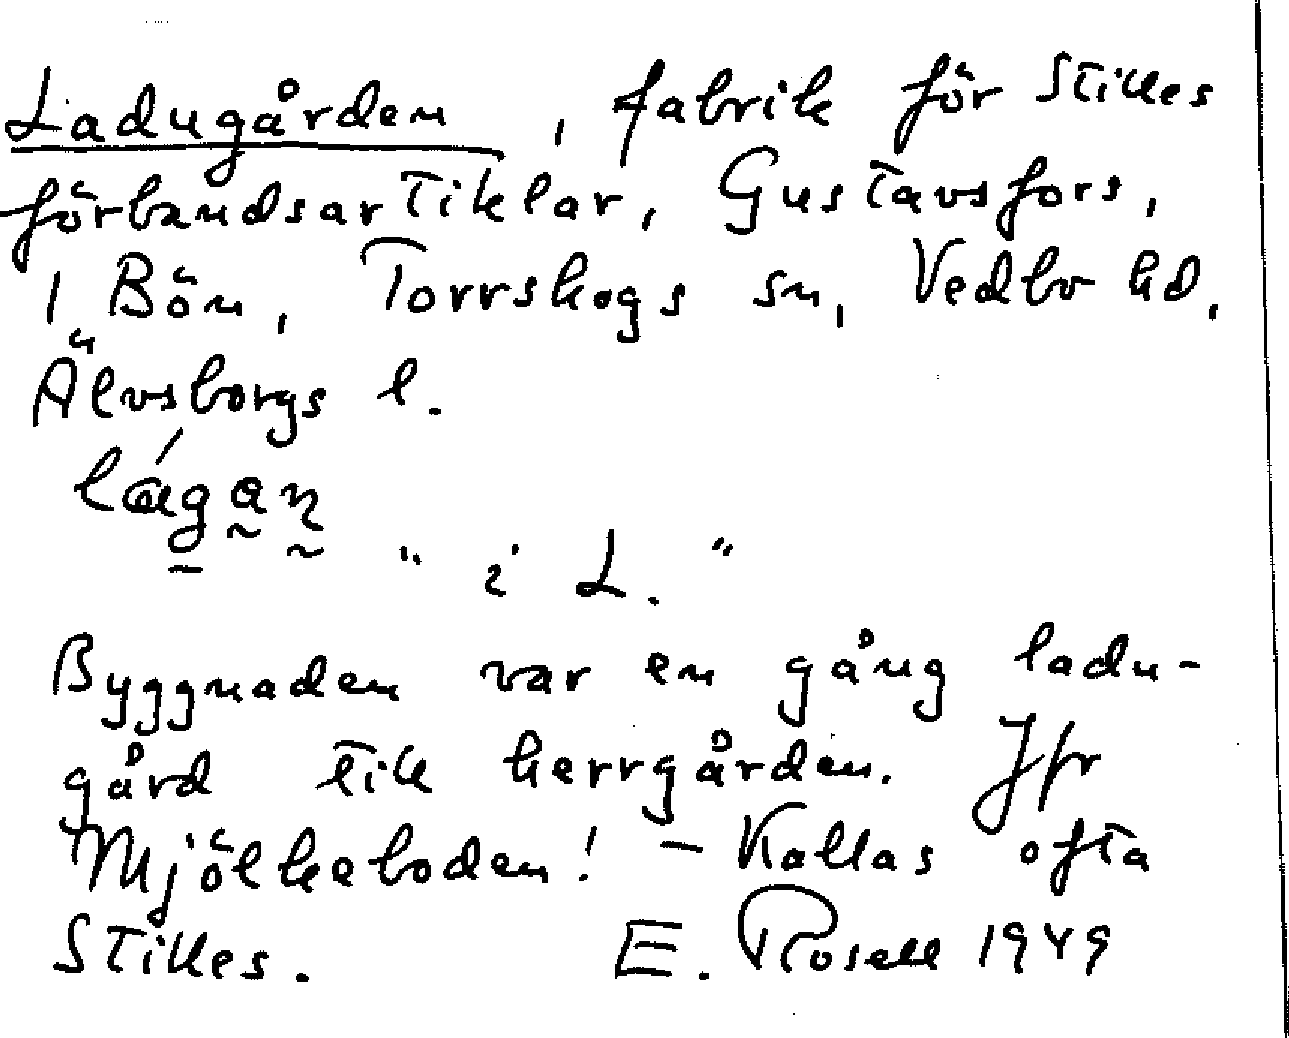 Ladugården, fabrik för Stilles
förbandsartiklar, Gustavsfors,
i Bön, Torrskogs sn, Vedbo hd,
Älvsborgs l.
"i L."
Byggnaden var en gång ladu-
gård till herrgården. Jfr
Mjölkeboden! – Kallas ofta
Stilles. E. Rosell 1949